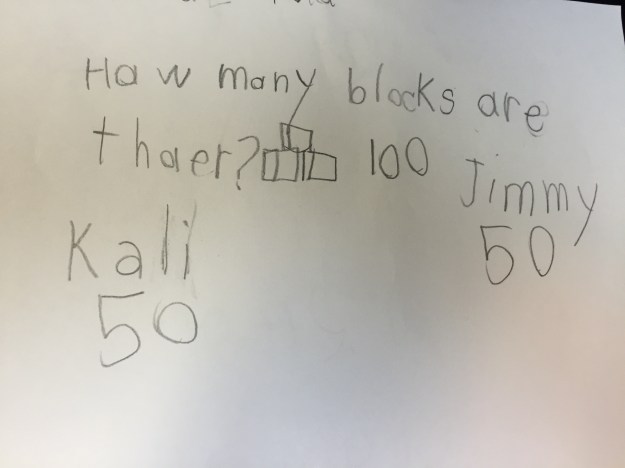 How many blocks are
thaer? 100 Jimmy
50
Kali
50